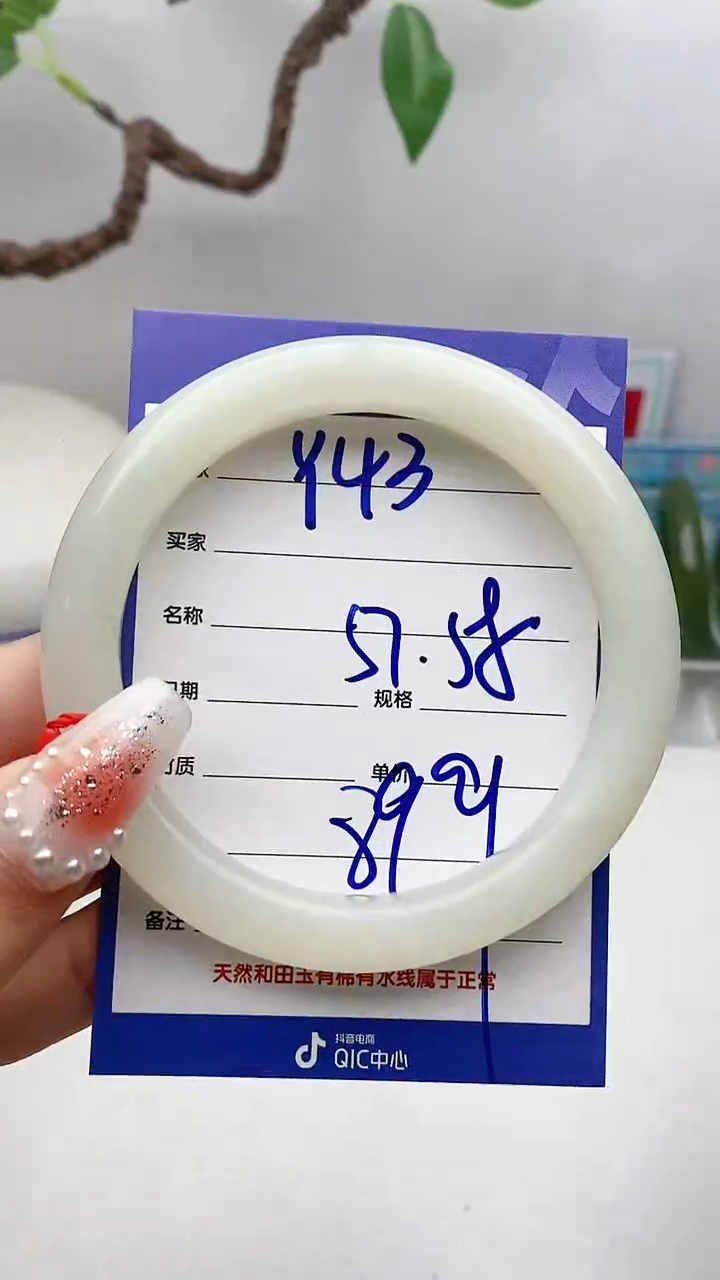 Y43
买家
名称
57.58
日期 规格
材质 单价
899
备注
天然和田玉有棉有水线属于正常
抖音电商
QIC中心